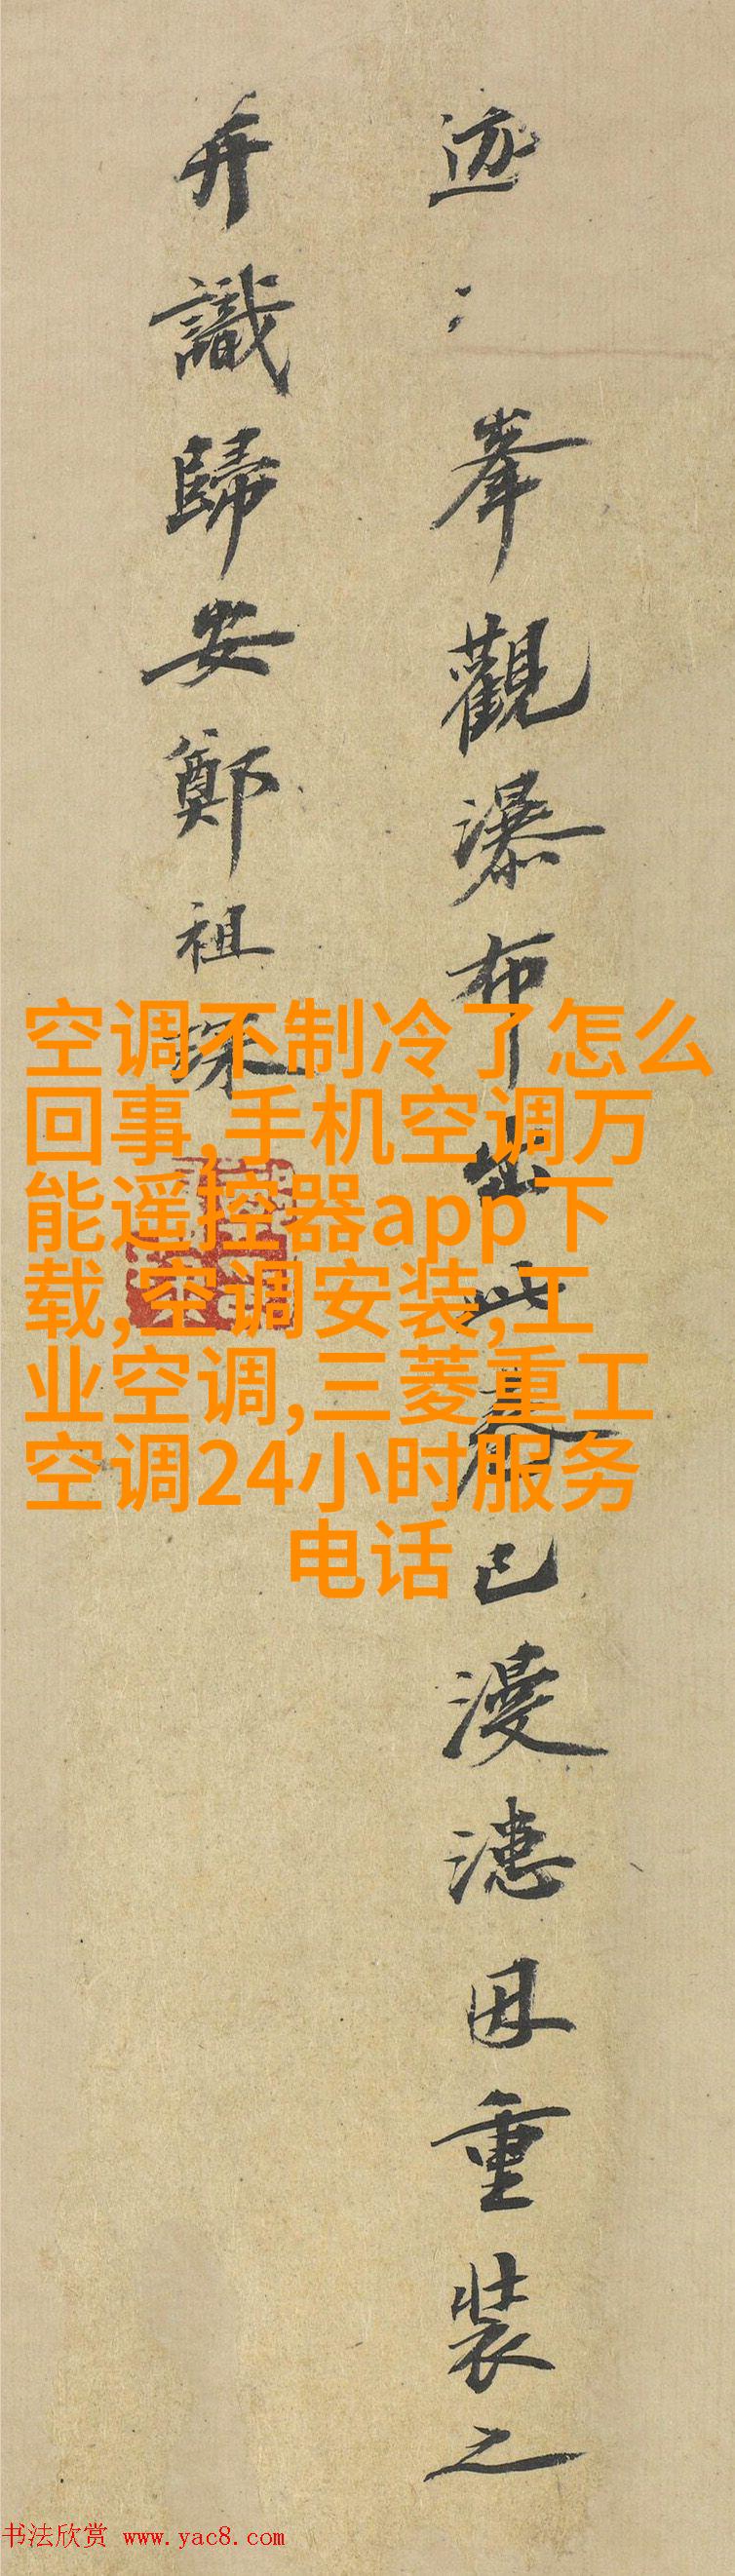 迹〻峯觀瀑布出此卷已漫漶因重裝之
并識歸安鄭祖琛
空调不制冷了怎么
回事,手机空调万
能遥控器app下
载,空调安装,工
业空调,三菱重工
空调24小时服务
电话
书法欣赏 www.yac8.com